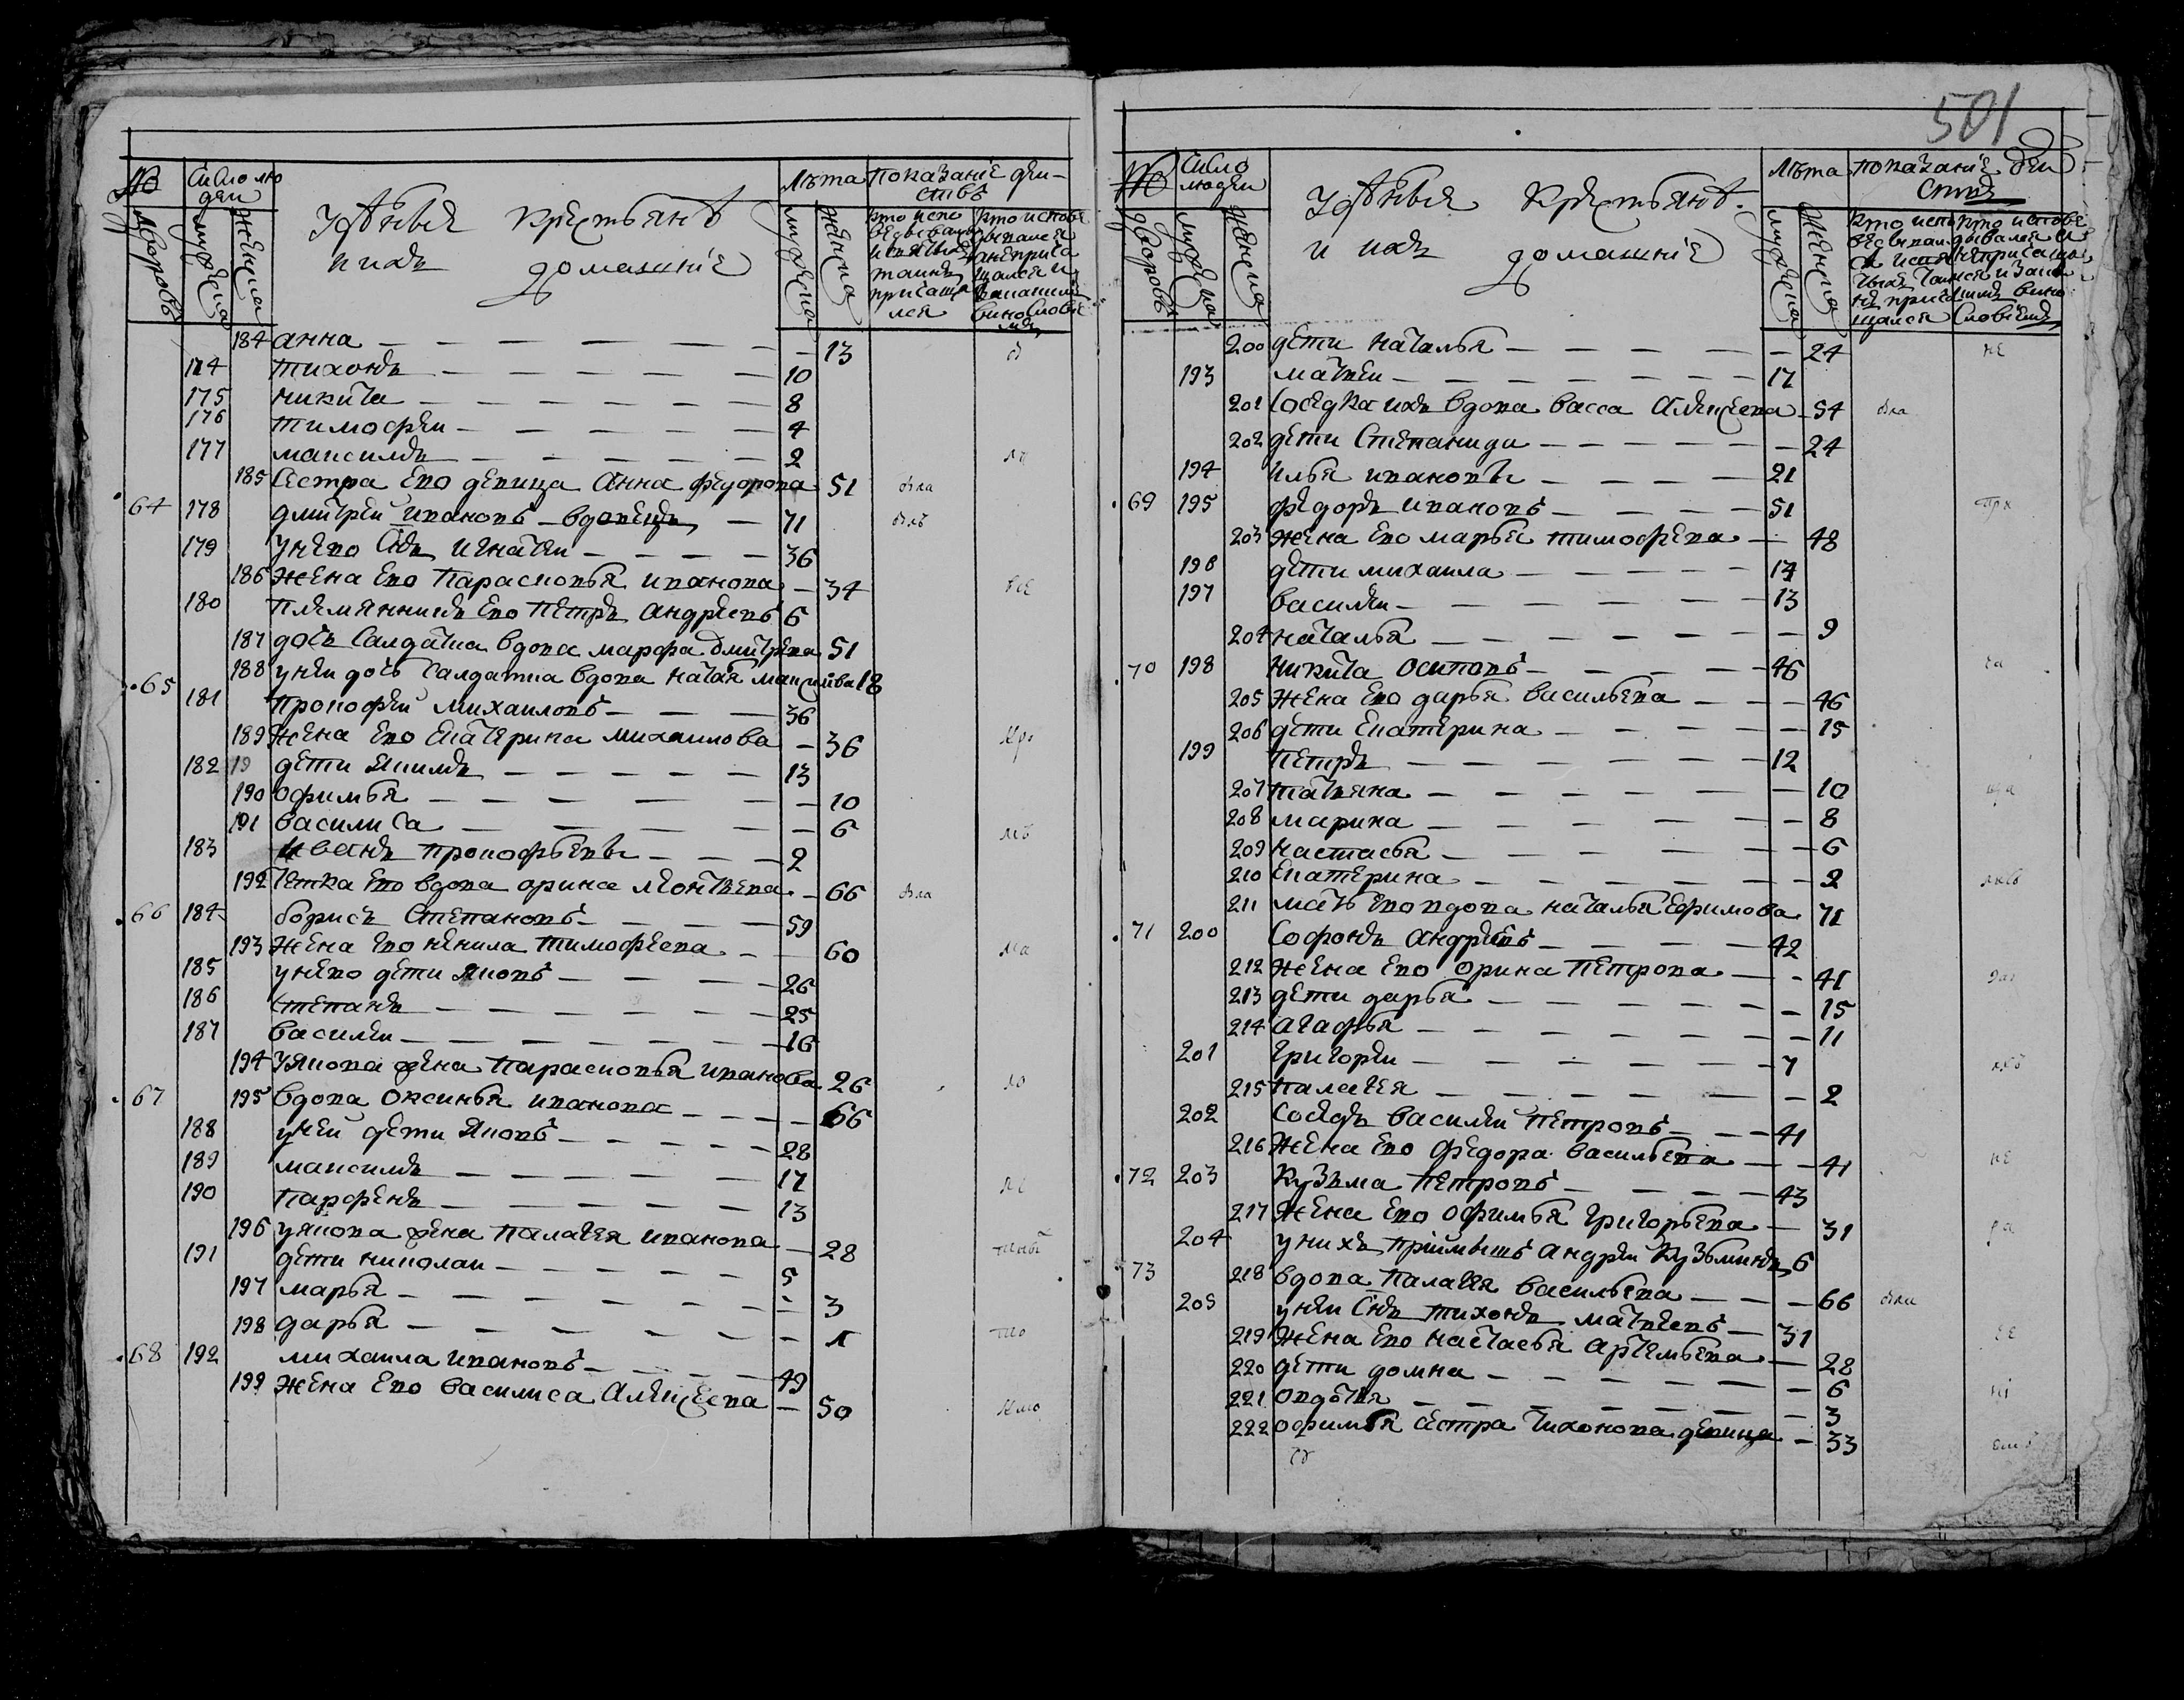 501
№ Число лю Лѣта показанiе дѣи-
деи ствъ
Удѣлныя крестьянѣ
и ихъ домашнiе
дворовъ мужеска женска мужеска женска
184 анна — 13
174 тихонъ — 10
175 никита — 8
176 тимофеи — 4
177 максимъ — 2
185 Сестра Его девица Анна Федорова 51 была
64 178 дмитреи Ивановъ — вдовецъ — 71 былъ
179 у него Снъ Игнатеи — 36
186 жена Его Парасковья иванова — 34
180 племянникъ Его Петръ Андреевъ 6
187 дочь Салдатка вдова марфа дмитрева 51
188 у неи дочь Салдатка вдова 18
65 181 Прокофеи михаиловъ — 36
189 жена Его Екатерина михаилова — 36
182 19 дети Якимъ — 13
190 офимья — 10
191 василиса — 6
183 иванъ прокофьевъ — 2
192 Тетка Его вдова орина леонтьева — 66 была
66 184 борисъ Степановъ — 59
193 жена Его ненила тимофеева — 60
185 у него дети Яковъ — 26
186 степанъ — 25
187 василеи — 16
194 У Якова жена Парасковья иванова 26
67 195 вдова оксинья иванова — 66
188 у неи дети Яковъ — 28
189 максимъ — 17
190 парфенъ — 13
196 у якова жена палагея иванова — 28
191 дети николаи — 5
197 марья — 3
198 дарья — 1
68 192 михаила ивановъ — 49
199 жена Его василиса Алексеева — 50
№ Число Лѣта показанiе дѣи
людеи ствъ
Удѣлныя Крестьянѣ.
и ихъ домашнiе
дворовъ мужеска женска мужеска женска
200 дети наталья — 24
193 матвеи — 17
201 Соседка ихъ вдова васса Алексеева — 54 была
202 дети Степанида — 24
194 илья ивановъ — 21
69 195 федоръ ивановъ — 51
203 жена Его марья тимофеева — 48
196 дети михаила — 14
197 василеи — 13
204 наталья — 9
70 198 никита осиповъ — 46
205 жена Его дарья васильева — 46
206 дети Екатерина — 15
199 петръ — 12
207 татьяна — 10
208 марина — 8
209 настасья — 6
210 Екатерина — 2
211 мать Его вдова наталья Ефимова 71
71 200 Софонъ андреевъ — 42
212 жена Его орина петрова — 41
213 дети дарья — 15
214 агафья — 11
201 григореи — 7
215 палагея — 2
202 Соседъ василеи петровъ — 41
216 жена Его федора васильева — 41
72 203 кузьма петровъ — 43
217 жена Его офимья григорьева — 31
204 у нихъ прiимышъ андреи кузьминъ 6
73 218 вдова палагея васильева — 66 была
205 у неи Снъ тихонъ матвеевъ — 31
219 жена Его настасья артемьева — 28
220 дети домна — 6
221 овдотья — 3
222 офимья сестра тихонова девица — 33